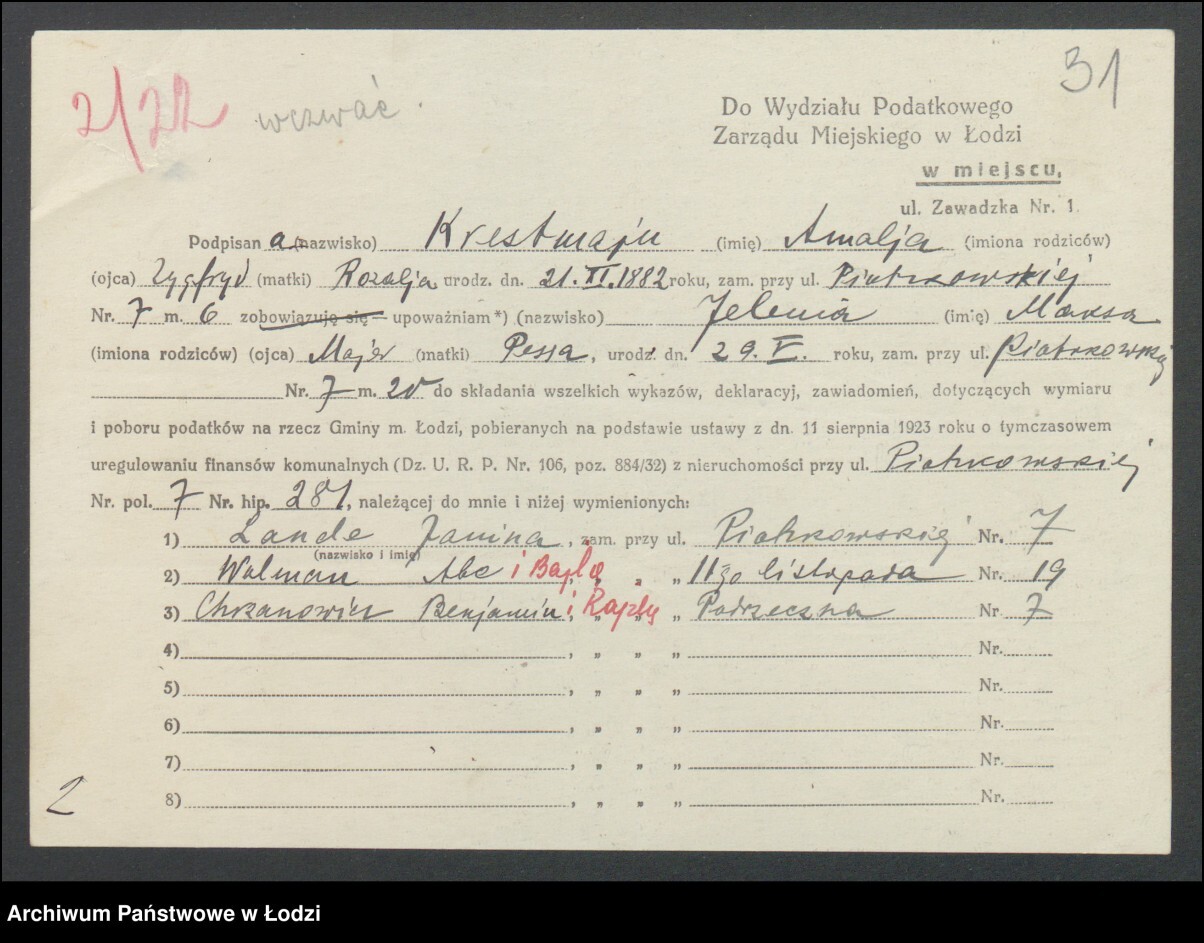 31
2/22 wezwać.
Do Wydziału Podatkowego
Zarządu Miejskiego w Łodzi
w miejscu,
ul. Zawadzka Nr. 1.
Podpisan a (nazwisko) (imię) Amalja (imiona rodziców)
(ojca) Zygfryd (matki) Rozalja urodz. dn. 21.XI.1882 roku, zam. przy ul. Piotrkowskiej
Nr. 7 m. 6 zobowiązuję się — upoważniam*) (nazwisko) Jelenia (imię) Maksa
(imiona rodziców) (ojca) Majer (matki) Pessa, urodz. dn. 29.V. roku, zam. przy ul. Piotrkowskiej
Nr. 7 m. 20 do składania wszelkich wykazów, deklaracyj, zawiadomień, dotyczących wymiaru
i poboru podatków na rzecz Gminy m. Łodzi, pobieranych na podstawie ustawy z dn. 11 sierpnia 1923 roku o tymczasowem
uregulowaniu finansów komunalnych (Dz. U. R. P. Nr. 106, poz. 884/32) z nieruchomości przy ul. Piotrkowskiej
Nr. pol. 7 Nr. hip. 281, należącej do mnie i niżej wymienionych:
1) Lande Janina, zam. przy ul. Piotrkowskiej Nr. 7
(nazwisko i imię)
2) Wolman Abe i Bajlę „ „ „ 11go listopada Nr. 19
3) Chrzanowicz Benjamin i Rajzlę „ „ „ Podrzeczna Nr 7
4) , „ „ „ Nr.
5) , „ „ „ Nr.
6) , „ „ „ Nr.
7) , „ „ „ Nr.
8) , „ „ „ Nr.
2
Archiwum Państwowe w Łodzi